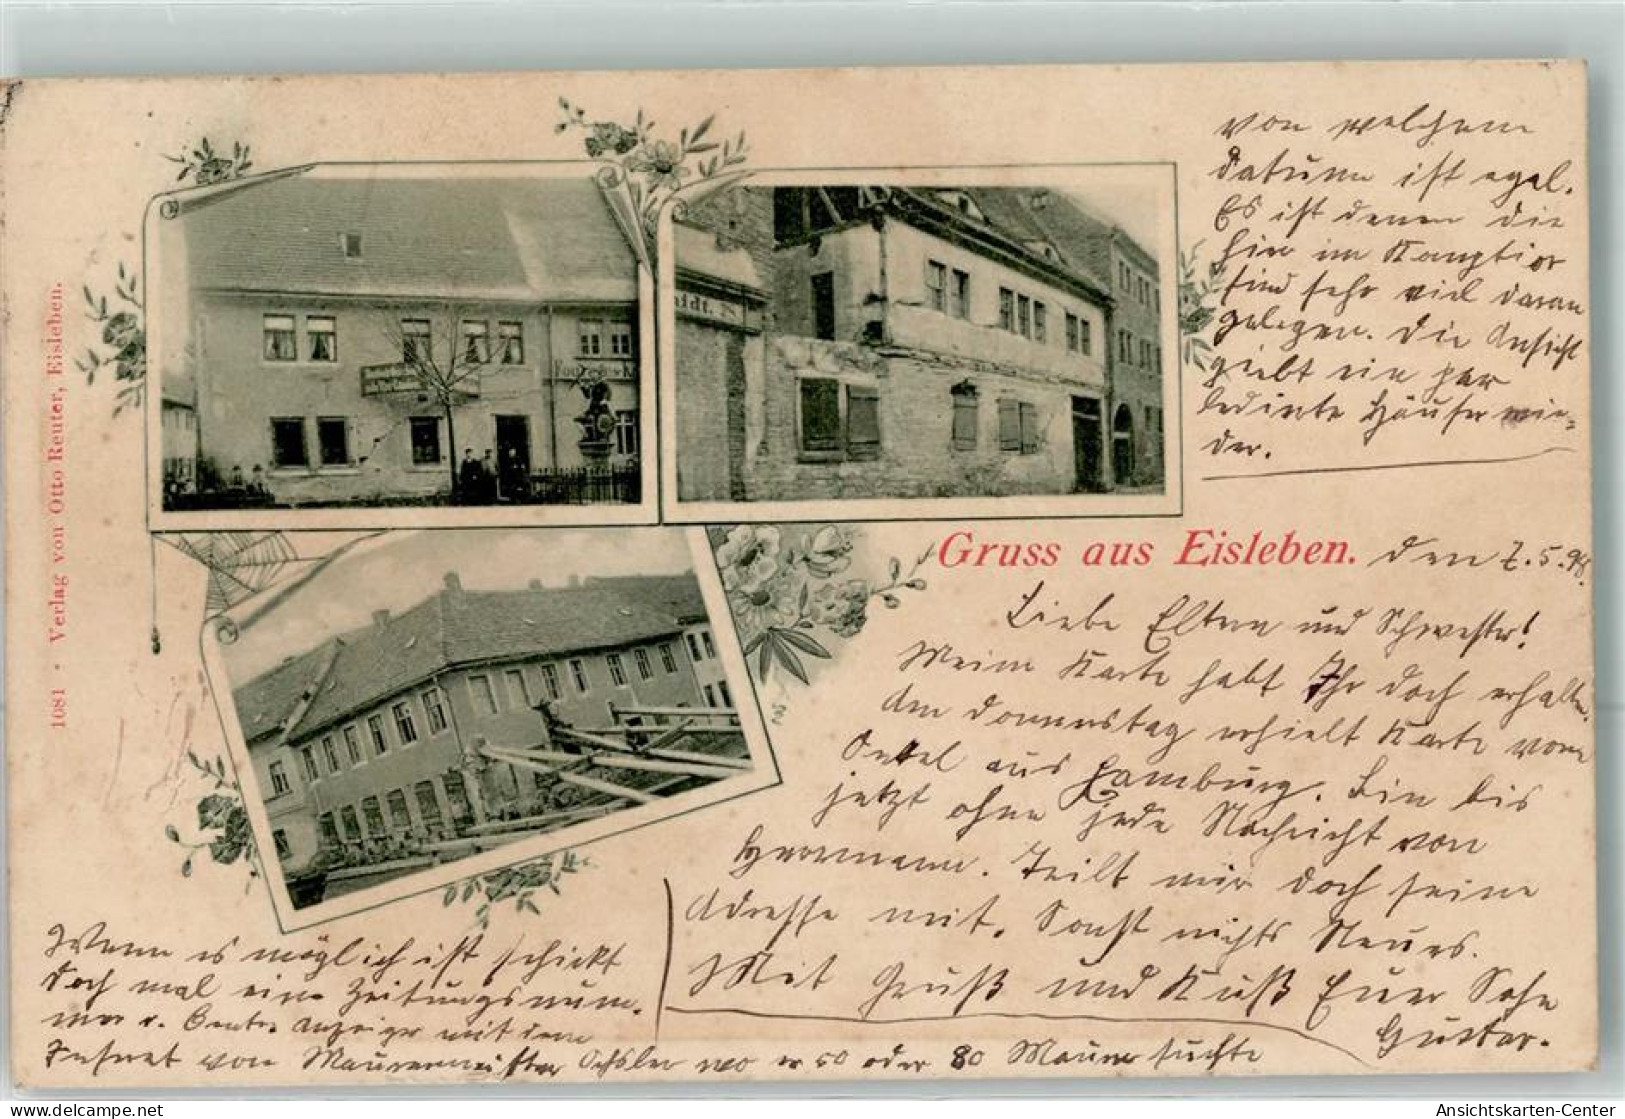 Gruss aus Eisleben. den 7.5.98.
Liebe Eltern und Schwester!
Meine Karte habt Ihr doch erhalten.
Am Donnerstag erhielt Karte vom
Onkel aus Hamburg. Bin bis
jetzt ohne jede Nachricht von
Herrmann. Teilt mir doch seine
Adresse mit. Sonst nichts Neues.
Mit Gruß und Kuß Euer Sohn
Gustav.
Wenn es möglich ist schickt
doch mal eine Zeitungsnum-
mer Anzeiger mit dem
Inserat von Maurermeister Ochsler wo er 50 oder 80 Maurer suchte
von welchem
Datum ist egal.
Es ist denen die
hier im
sind sehr viel daran
gelegen. Die Ansicht
giebt ein par
ledirte Häuser wie-
der.
1081 · Verlag von Otto Reuter, Eisleben.
idt.
www.delcampe.net
Ansichtskarten-Center